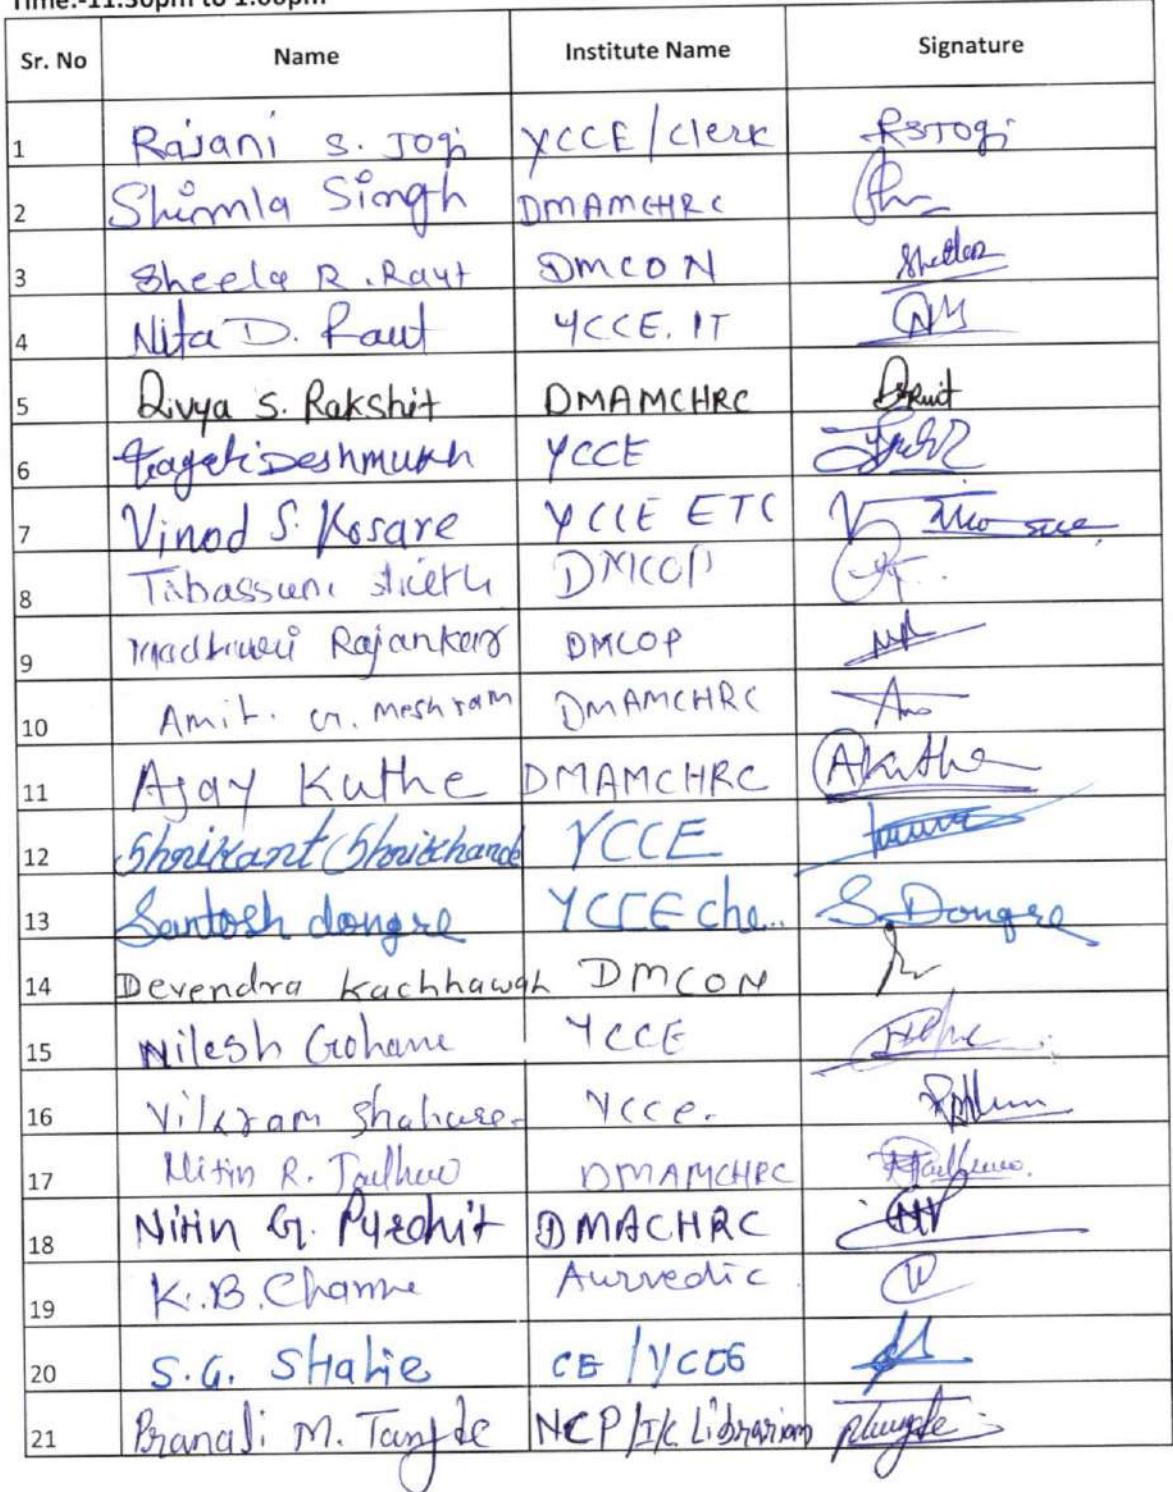 Time:-11:30pm to 1:00pm
Sr. No Name Institute Name Signature
1 Rajani S. Jogi YCCE/clerk RSJogi
2 Shimla Singh DMAMCHRC
3 Sheela R. Raut DMCON Sheela
4 Nita D. Raut YCCE. IT
5 Divya S. Rakshit DMAMCHRC
6 Pragati Deshmukh YCCE
7 Vinod S. Kosare YCCE ETC
8 Tabassum DMCOP
9 Madhuri Rajankar DMCOP
10 Amit. G. Meshram DMAMCHRC
11 Ajay Kuthe DMAMCHRC AKuthe
12 Shrikant Shrikhande YCCE
13 Santosh dongre YCCE che.. S. Dongre
14 Devendra Kachhawah DMCON
15 Nilesh Gohane YCCE
16 Vikram Shahare YCCE.
17 Nitin R. DMAMCHRC
18 Nitin G. Purohit DMACHRC
19 K.B. Channe Aurvedic
20 S.G. SHahie CE/YCCE
21 Pranali M. Tangde NCP/I/C Librarian